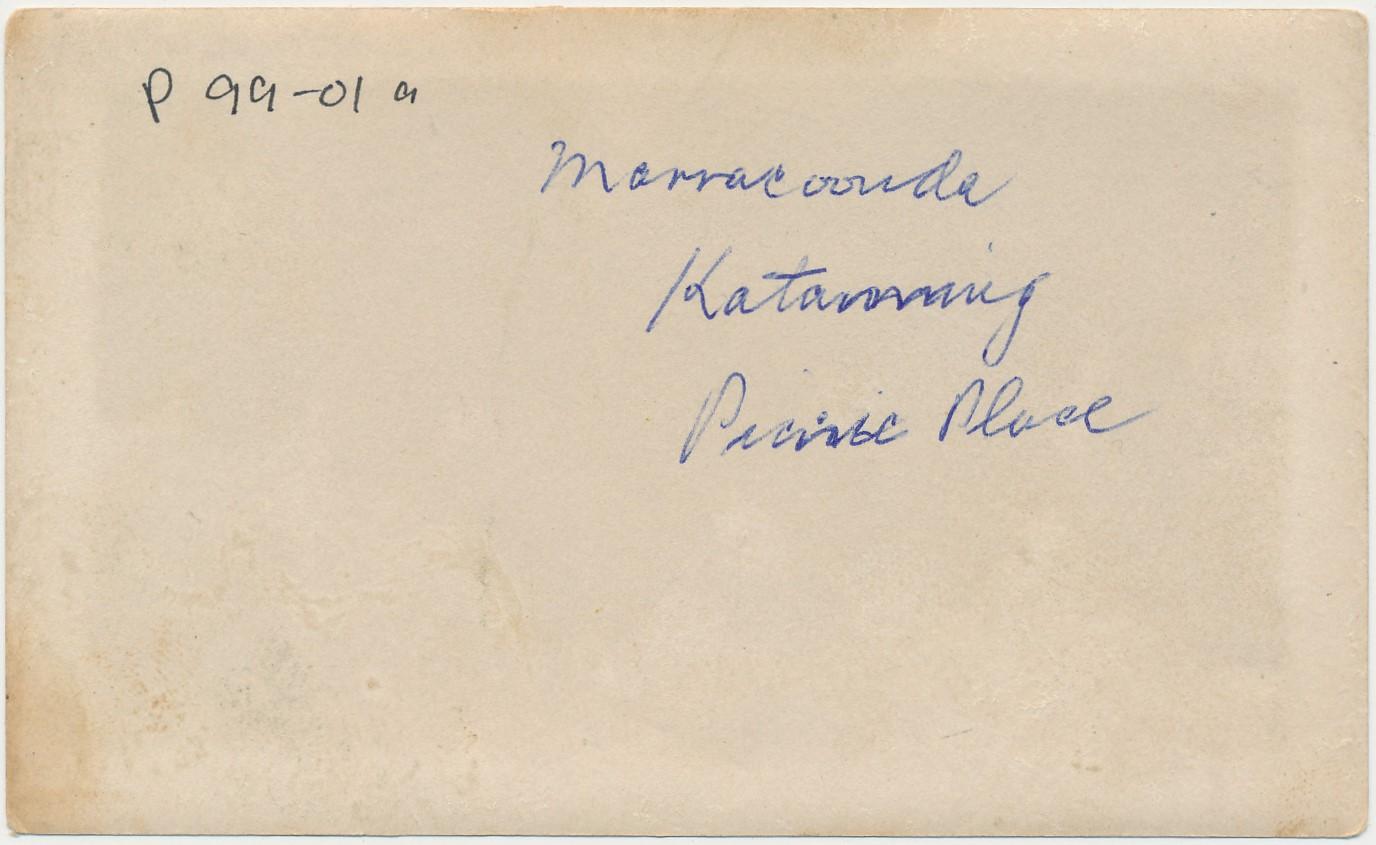 P 99-01 a
Marracoonda
Katanning
Picnic Place